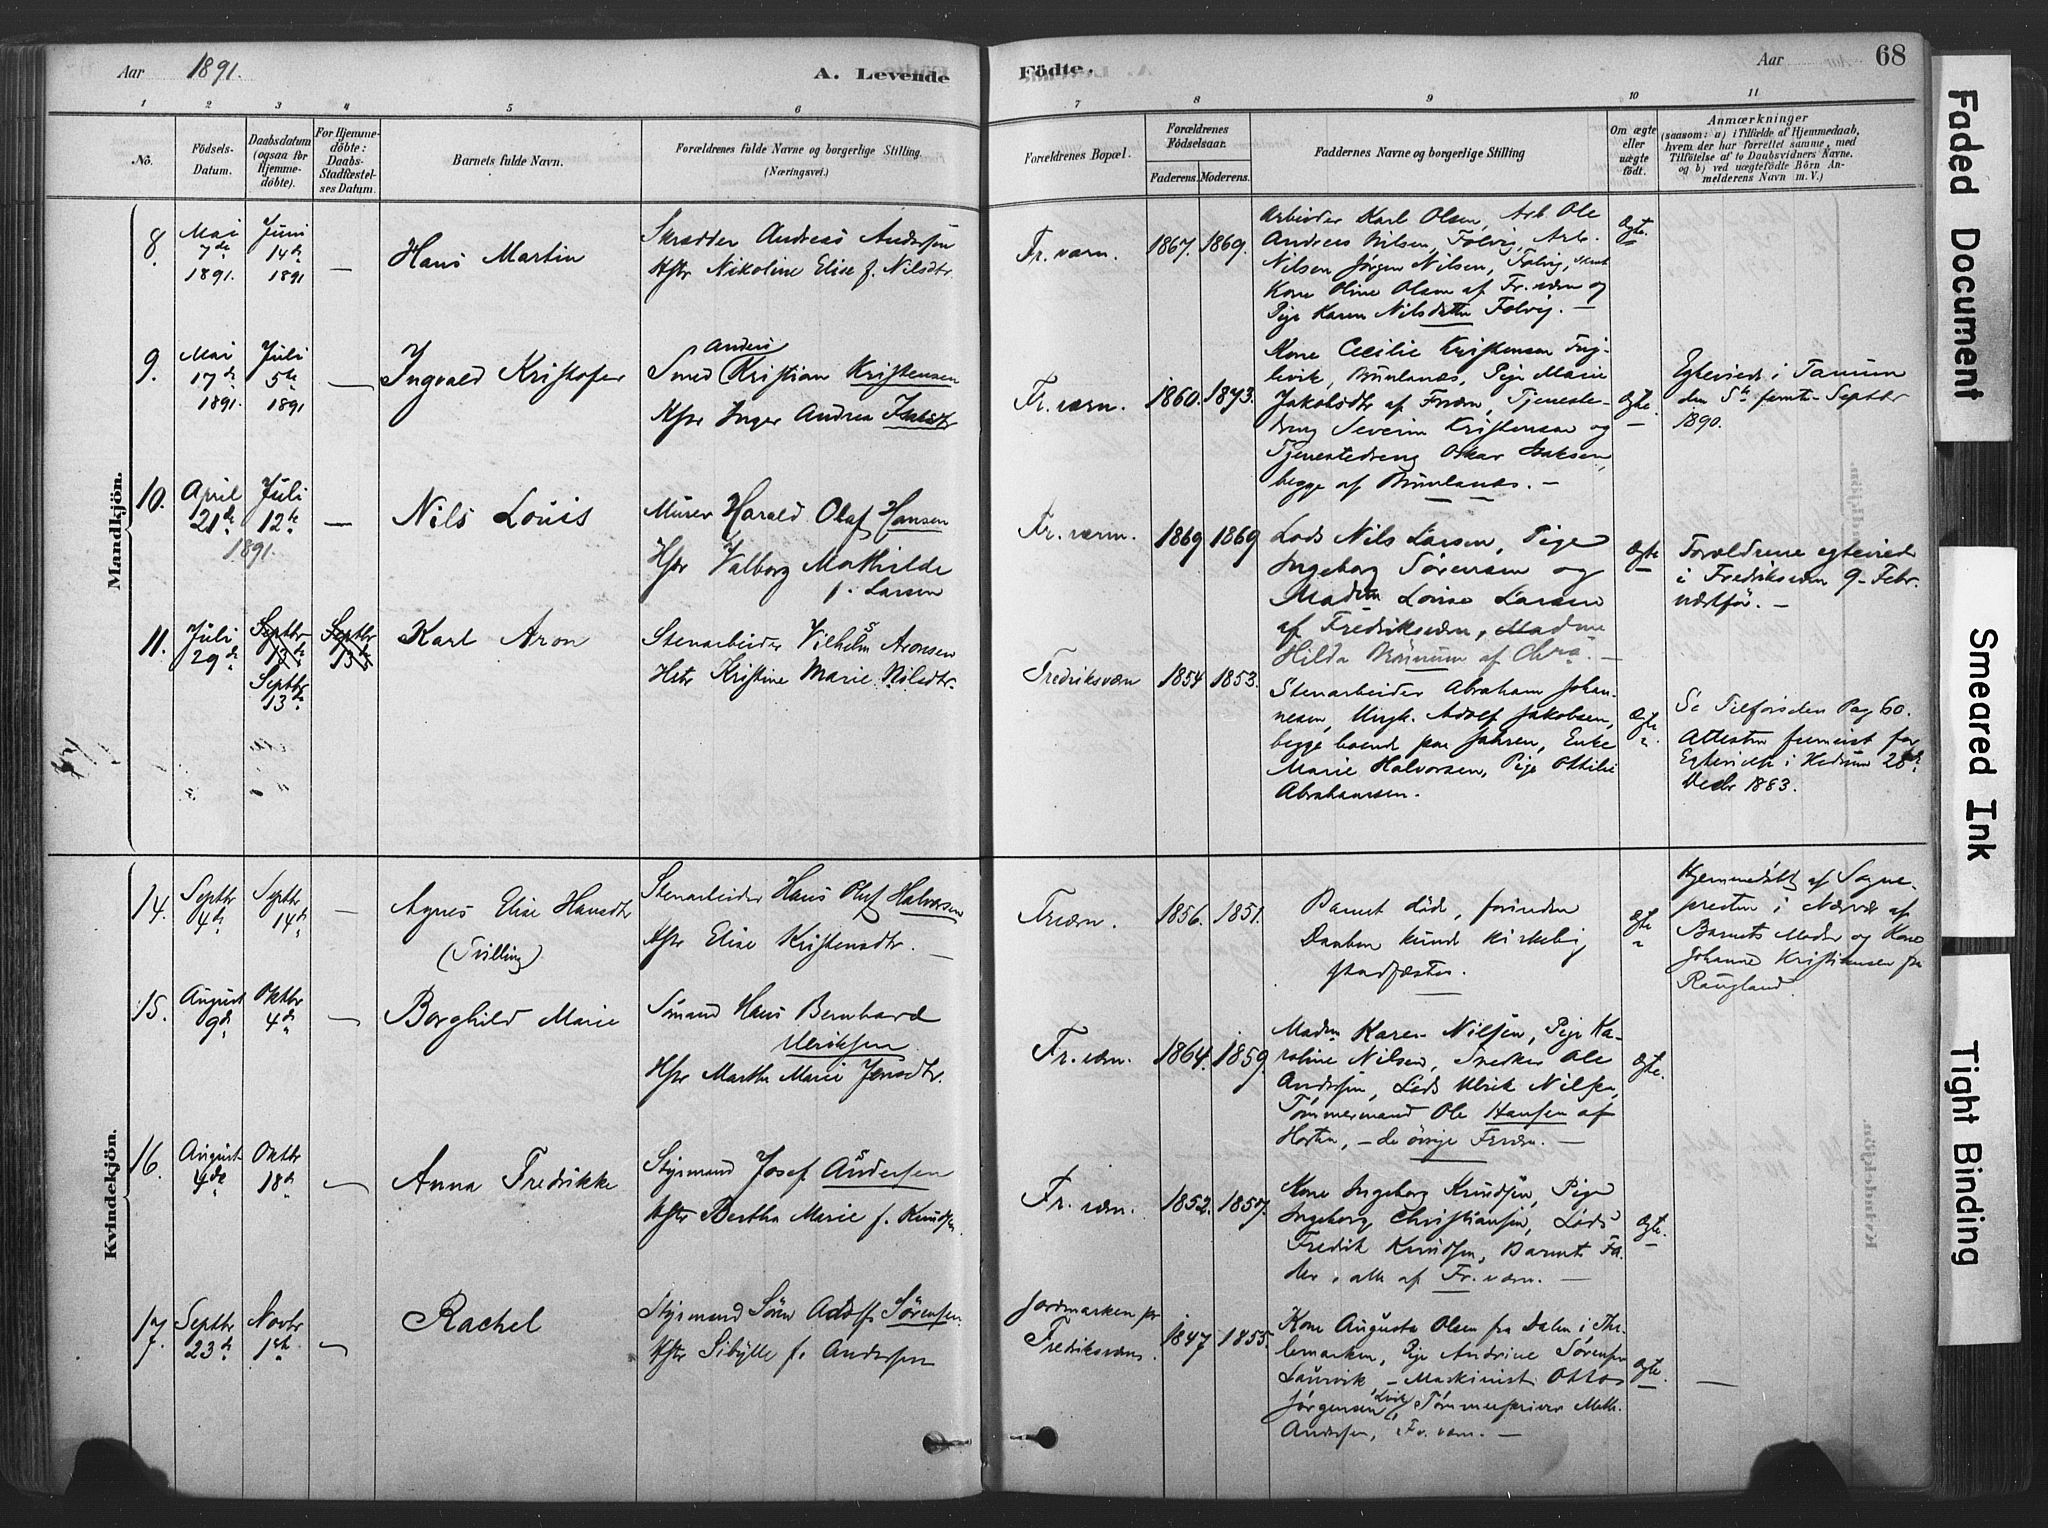 Aar 1891.
A. Levende
Födte.
Aar
68
1 2 3 4 5 6 7 8 9 10 11
No.
Födsels-Datum.
Daabsdatum (ogsaa for Hjemmedöbte).
For Hjemmedöbte: Daabs-Stadfæstelses Datum.
Barnets fulde Navn.
Forældrenes fulde Navne og borgerlige Stilling.
(Næringsvei.)
Forældrenes Bopæl.
Forældrenes Födselsaar.
Faderens. Moderens.
Faddernes Navne og borgerlige Stilling
Om ægte eller uægte födt.
Anmærkninger
(saasom: a) i Tilfælde af Hjemmedaab,
hvem der har forrettet samme, med
Tilföielse af to Daabsvidners Navne,
og b) ved uægtefödte Börn Anmelderens Navn m. V.)
Mandkjön.
8.
Mai 7de 1891.
Juni 14de 1891
—
Hans Martin
Skrædder Andreas Andersen
Hstr Nikoline Elise f. Nilsdtr.
Fr. værn.
1867. 1869.
Arbeider Karl Olsen, Arb Ole
Andreas Nilsen, Folvig, Arb.
Nilsen Jørgen Nilsen, Folvig,
Kone Oline Olsen af Fr. værn og
Pige Karen Nilsdatter Folvig. —
Ægte.
9.
Mai 17de 1891.
Juli 5te 1891
—
Ingvald Kristofer
Anders
Smed Kristian Kristensen
Hstr Inger Andrea
Fr. værn.
1860. 1843.
Kone Cecilie Kristensen
Brunlanæs, Pige Marie
Jakobsdtr af Frværn, Tjeneste-
dreng Severin Kristensen og
Tjenestedreng Oskar Isaksen,
begge af Brunlanæs. —
Ægte.
Egteviede i Tanum
den 5te femte Septbr
1890.
10.
April 21de 1891.
Juli 12te
—
Nils Louis
Murer Harald Olaf Hansen
Hstr Valborg Mathilde
f. Larsen
Fr. værn.
1869 1869
Lods Nils Larsen, Pige
Ingeborg Sørensen og
Madm Louise Larsen
af Fredriksværn, Madme
Hilda Brønnum af Chra. —
Ægte
Forældrene egteviede
i Fredriksværn 9. Febr.
næstfør. —
11.
Juli 29de
Septbr 13de
Septbr 13de
Septbr 13de
Karl Aron
Stenarbeider Vilhelm Aronsen
Hstr Kristine Marie Nilsdtr.
Fredriksværn
1854 1853.
Stenarbeider Abraham Johan-
nesen, Ungk. Adolf Jakobsen,
begge boende paa Jahren, Enke
Marie Halvorsen, Pige Ottilie
Abrahamsen.
Ægte.
Se Tilførselen Pag 60.
Attesten fremvist for
Egtevielse i Hedrum 28de
Decbr 1883.
Kvindekjön.
14.
Septbr 4de
Septbr 14de
—
Agnes Elise Hansdtr
(Tvilling)
Stenarbeider Hans Olaf Halvorsen
Hstr Elise Kristensdtr. —
Frværn.
1856. 1851.
Barnet døde, forinden
Daaben kunde kirkelig
stadfæstes.
Ægte
Hjemmedøbt af Sogne-
presten i Nærvær af
Barnets Moder og Kone
Johanne Kristiansen fra
Raugland.
15.
August 9de
Oktbr 4de
—
Borghild Marie
Sømand Hans Bernhard
Ulriksen
Hstr Marthe Marie Jensdtr.
Fr. værn.
1864. 1859.
Madm Karen Nilsen, Pige Ka-
roline Nilsen, Snedker Ole
Andersen, Lods Ulrik Nilsen,
Tømmermand Ole Hansen af
Horten, — de øvrige Frværn. —
Ægte.
16.
August 4de
Oktbr 18de
—
Anna Fredrikke
Styrmand Josef Andersen
Hstr Bertha Marie f. Knudsen.
Fr. værn.
1852. 1857.
Kone Ingeborg Knudsen, Pige
Ingeborg Christiansen, Lods
Fredrik Knudsen, Barnets Fa-
der, alle af Fr. værn. —
Ægte.
17.
Septbr 23de
Novbr 1ste
—
Rachel
Styrmand Søren Adolf Sørensen.
Hstr Sibylle f. Andersen
Jordmarken pr
Fredriksværn.
1847 1855.
Kone Augusta Olsen fra Dalen i The-
lemarken, Pige Andrine Sørensen
Laurvik — Maskinist Otto
Jørgensen Lvik, Tømmerskriver Math.
Andersen, Fr. værn. —
Ægte.
—
Faded Document
Smeared Ink
Tight Binding